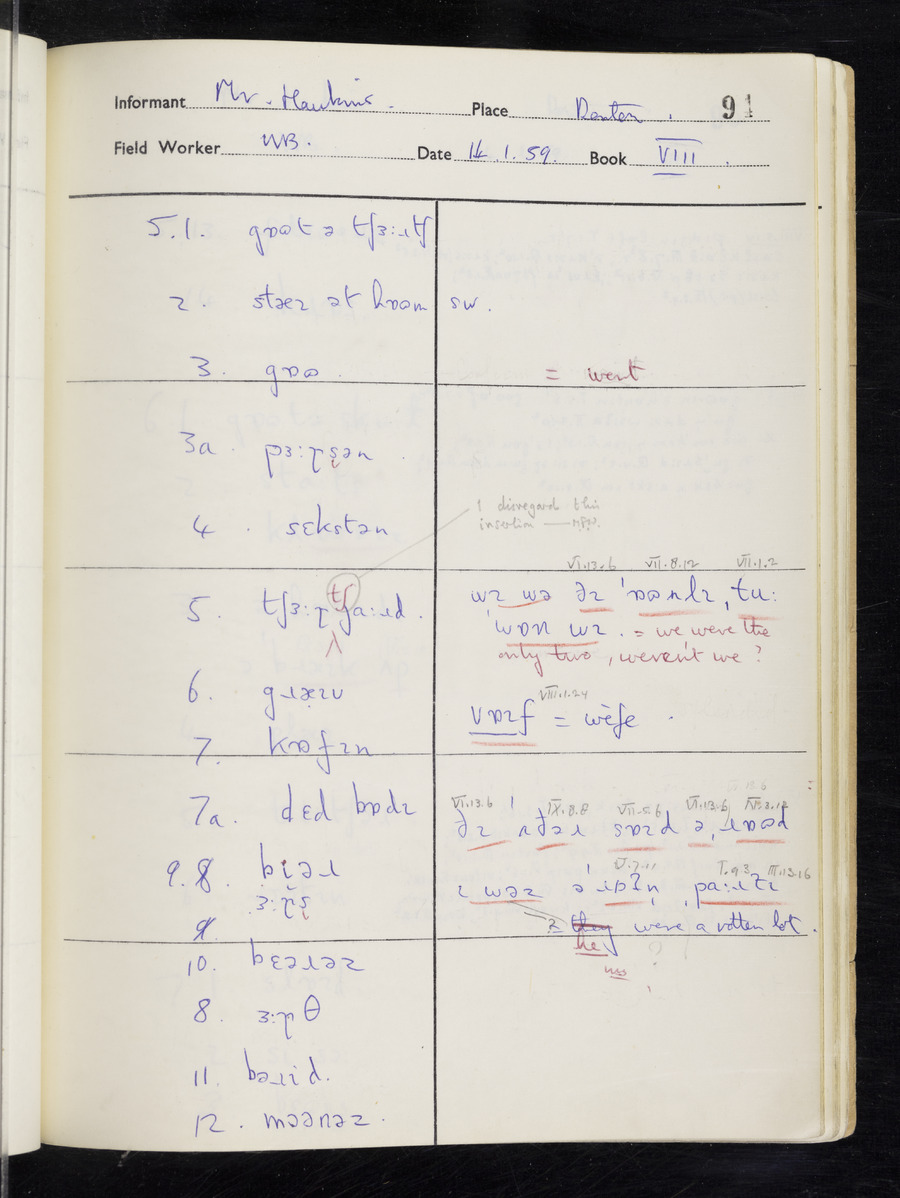 Informant Mr. Hawkins. Place Denton. 91
Field Worker WB. Date 14.1.59. Book VIII.
5.1. gɒʊt ə tʃɜ:ɹtʃ
2. stæɪ ət hɒʊm sw.
3. gɒʊ. = went
3a. pɜ:ɽʂən.
1 disregard this
4. sɛkstən insertion — 
VI.13.6 VII.8.12 VII.1.2
5. tʃɜ:ɽtʃ ja:ɹd. wɪ wə ðɪ 'ɒʊnlɪ, tu:
'wɒn wɪ. = we were the
only two, weren't we?
6. gɹæɪv VIII.1.24
vɒɪf = wife.
7. kɒfɪn
7a. dɛd bɒdɪ VI.13.6 IX.8.8 VII.5.6 VI.13.6 IV.3.12
ðɪ ʌðəɹ sɒɪd ə, ɹɒʊd
9. 8. bɪəɹ V.7.11 I.9.3 III.13.16
ɪ wəz ə'ɹɒʔn̩
ɜ:ɽʂ
9. ? they were a rotten lot.
he
was
10. bɛəɹəz
8. ɜ:ɽθ
11. bəɹɪd.
12. mɔənəz.